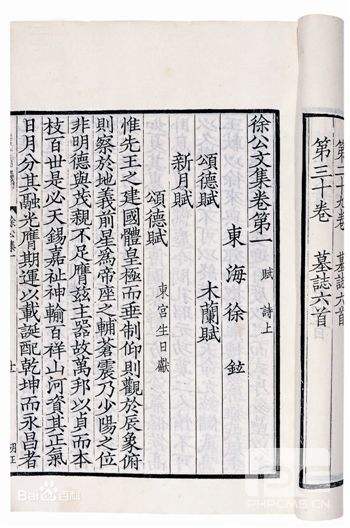 第二十九卷 墓誌六首
第三十卷 墓誌六首
徐公文集卷第一 賦 詩上
東海徐鉉
頌德賦 木蘭賦
新月賦
頌德賦 東宮生日獻
惟先王之建國體皇極而垂制仰則觀於辰象俯
則察於地義前星為帝座之輔蒼震乃少陽之位
非明德與茂親不足膺茲主器故萬邦以貞而本
枝百世是必天錫嘉祉神輸百祥山河資其正氣
日月分其融光膺期運以載誕配乾坤而永昌者
Bai 百科
PHPCMS.CN